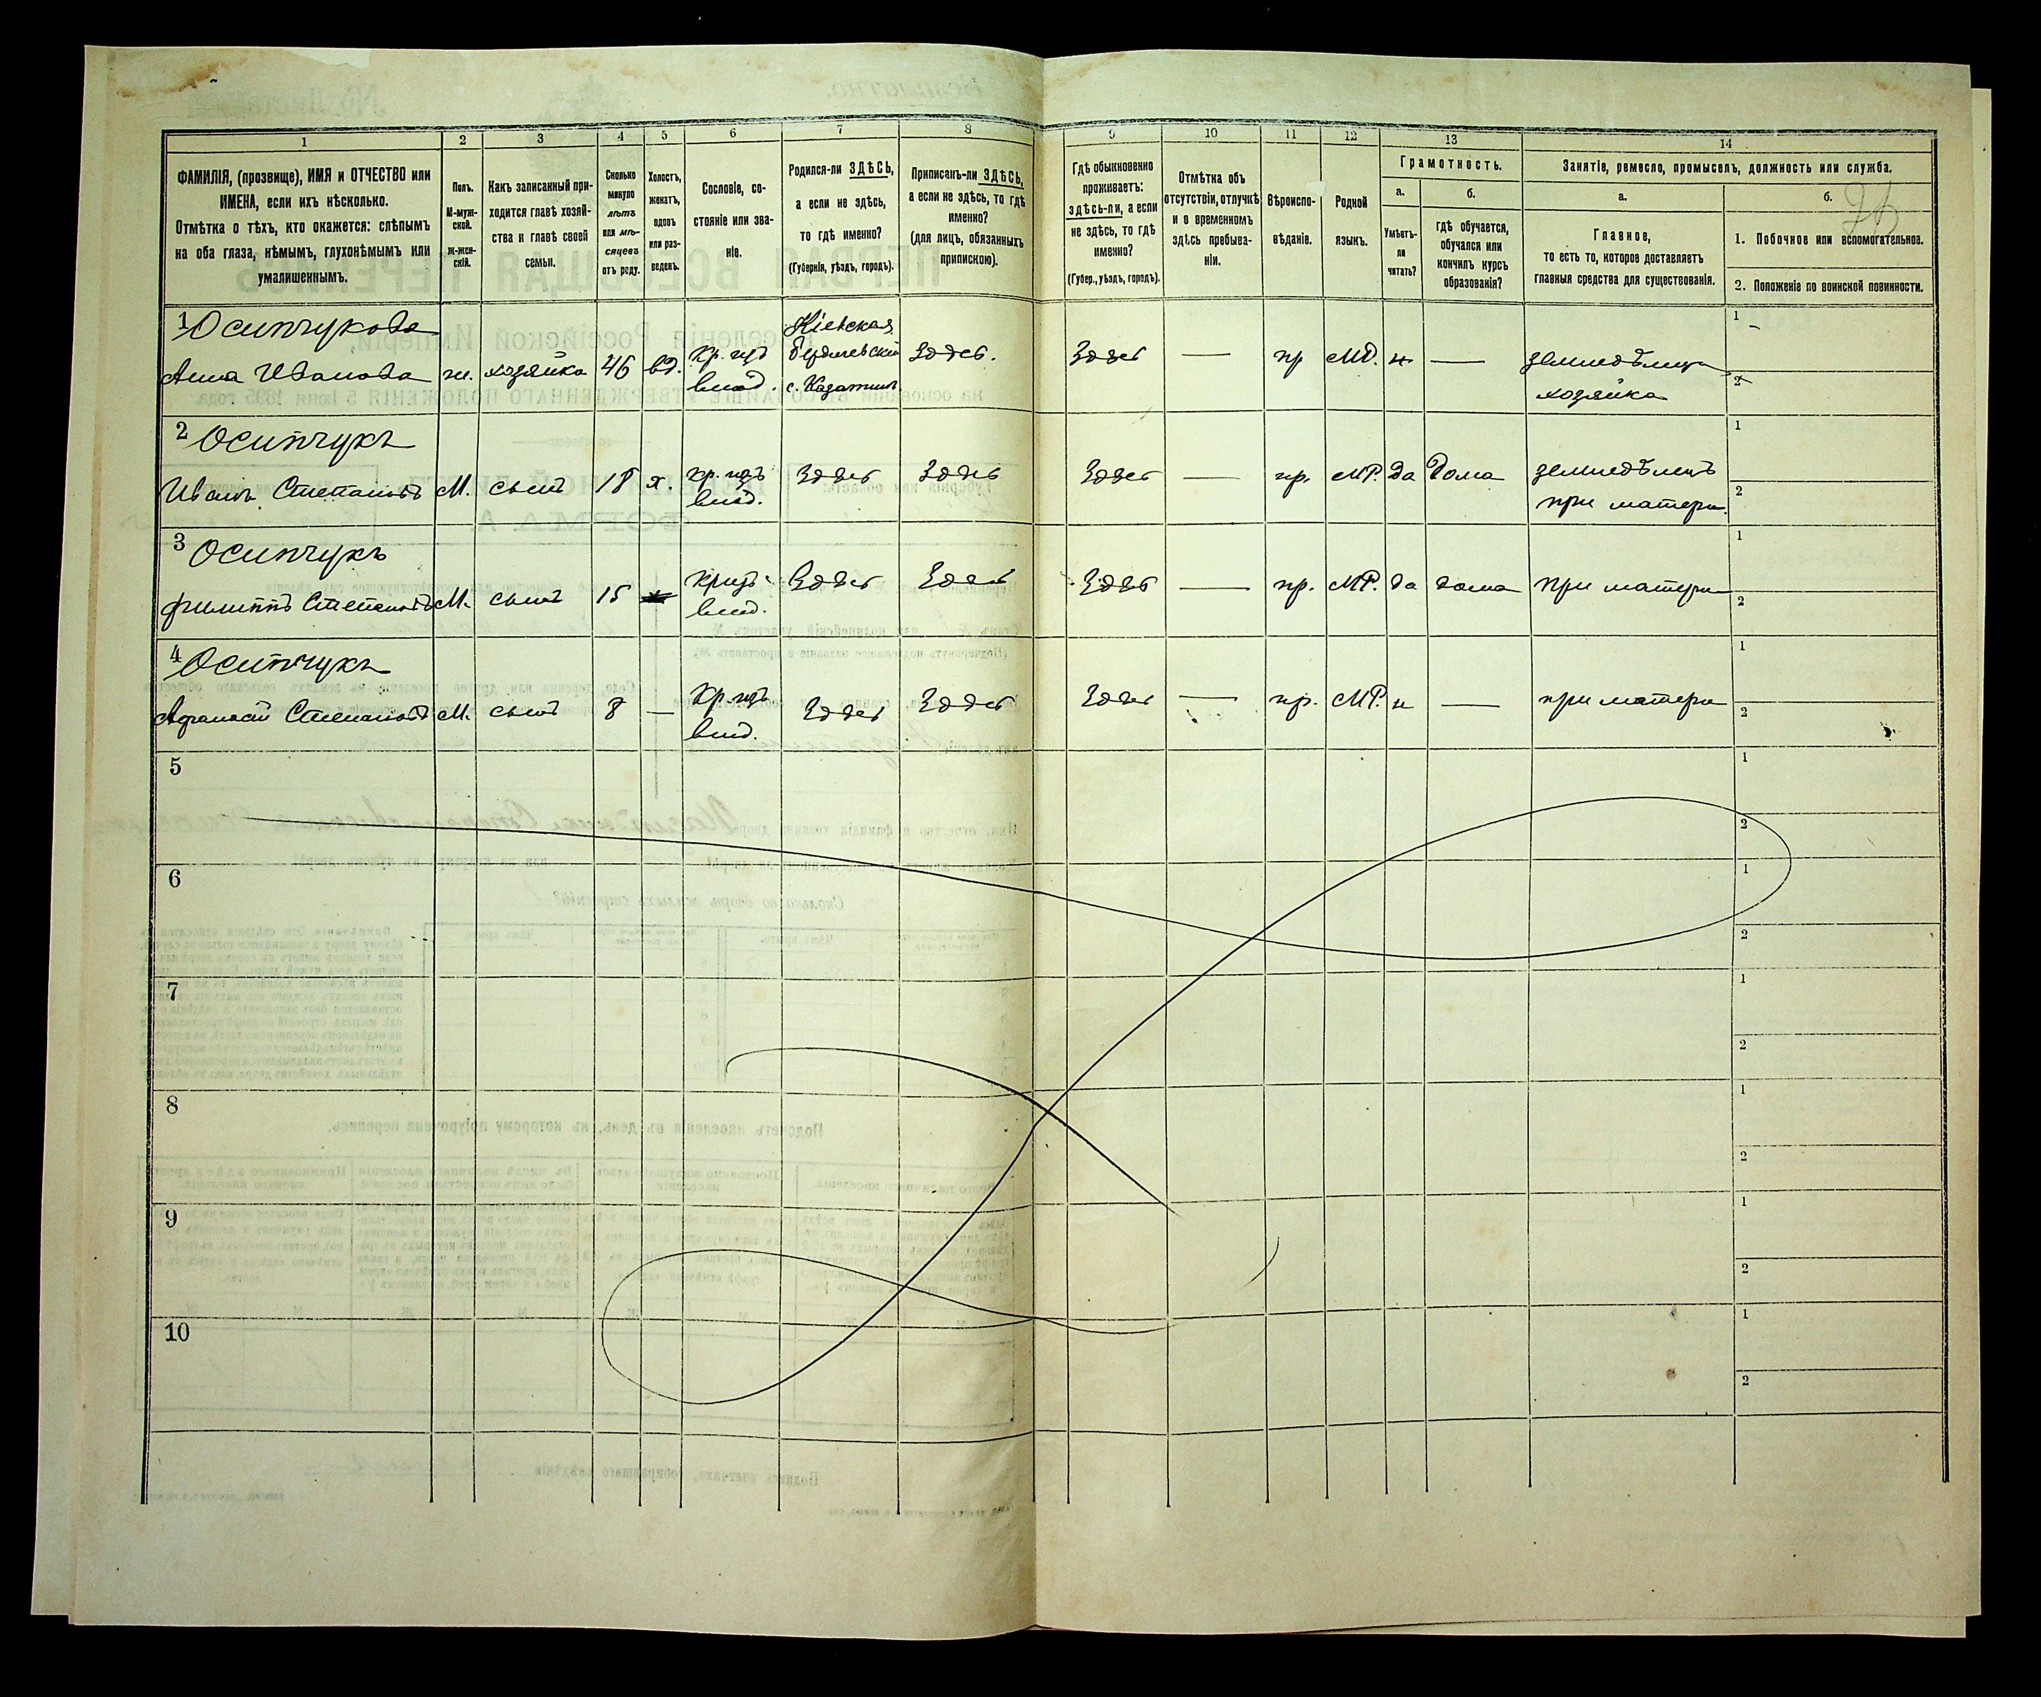 1 2 3 4 5 6 7 8 9 10 11 12 13 14
ФАМИЛІЯ, (прозвище), ИМЯ и ОТЧЕСТВО или
ИМЕНА, если ихъ нѣсколько.
Отмѣтка о тѣхъ, кто окажется: слѣпымъ
на оба глаза, нѣмымъ, глухонѣмымъ или
умалишеннымъ.
Полъ.
М-муж-
ской.
Ж-жен-
скій.
Какъ записанный при-
ходится главѣ хозяй-
ства и главѣ своей
семьи.
Сколько
минуло
лѣтъ
или мѣ-
сяцевъ
отъ роду.
Холостъ,
женатъ,
вдовъ
или раз-
веденъ.
Сословіе, со-
стояніе или зва-
ніе.
Родился-ли ЗДѢСЬ,
а если не здѣсь,
то гдѣ именно?
(Губернія, уѣздъ, городъ).
Приписанъ-ли ЗДѢСЬ,
а если не здѣсь, то гдѣ
именно?
(для лицъ, обязанныхъ
припискою).
Гдѣ обыкновенно
проживаетъ:
здѣсь-ли, а если
не здѣсь, то гдѣ
именно?
(Губер., уѣздъ, городъ).
Отмѣтка объ
отсутствіи, отлучкѣ
и о временномъ
здѣсь пребыва-
ніи.
Вѣроиспо-
вѣданіе.
Родной
языкъ.
Грамотность.
а.
Умѣетъ-
ли
читать?
б.
гдѣ обучается,
обучался или
кончилъ курсъ
образованія?
Занятіе, ремесло, промыселъ, должность или служба.
а.
Главное,
то есть то, которое доставляетъ
главныя средства для существованія.
б.
1. Побочное или вспомогательное.
2. Положеніе по воинской повинности.
1 Осипчукова
Анна Иванова ж. хозяйка 46 вд. кр. изъ
влад. Кіевская
Бердичевскій
с. Казатин. Здѣсь. Здѣсь — пр МР. н — земледѣлица
хозяйка
1
2
2 Осипчукъ
Иванъ Степановъ М. сынъ 18 х. кр. изъ
влад. Здѣсь Здѣсь Здѣсь — пр. МР. Да Дома земледѣлецъ
при матери
1
2
3 Осипчукъ
Филиппъ Степановъ М. сынъ 15 кр изъ
влад. Здѣсь Здѣсь Здѣсь — пр. МР. да дома при матери
1
2
4 Осипчукъ
Афанасій Степановъ М. сынъ 8 — кр. изъ
влад. Здѣсь Здѣсь Здѣсь — пр. МР. н — при матери
1
2
5
1
2
6
1
2
7
1
2
8
1
2
9
1
2
10
1
2